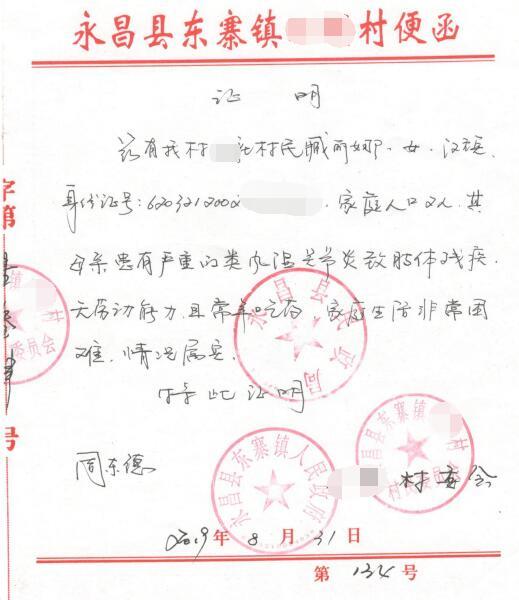 永昌县东寨镇 村便函
证 明
兹有我村 社村民臧丽娜,女,汉族,
身份证号:62032120002 ,家庭人口2人,其
母亲患有严重的类风湿关节炎致肢体残疾,
无劳动能力,且常年吃药,家庭生活非常困
难,情况属实。
特此证明
周东德
村委会
2019年8月31日
第 134 号
字第
号
永昌县民政局
永昌县东寨镇人民政府
永昌县东寨镇 村
村民委员会
村
委员会